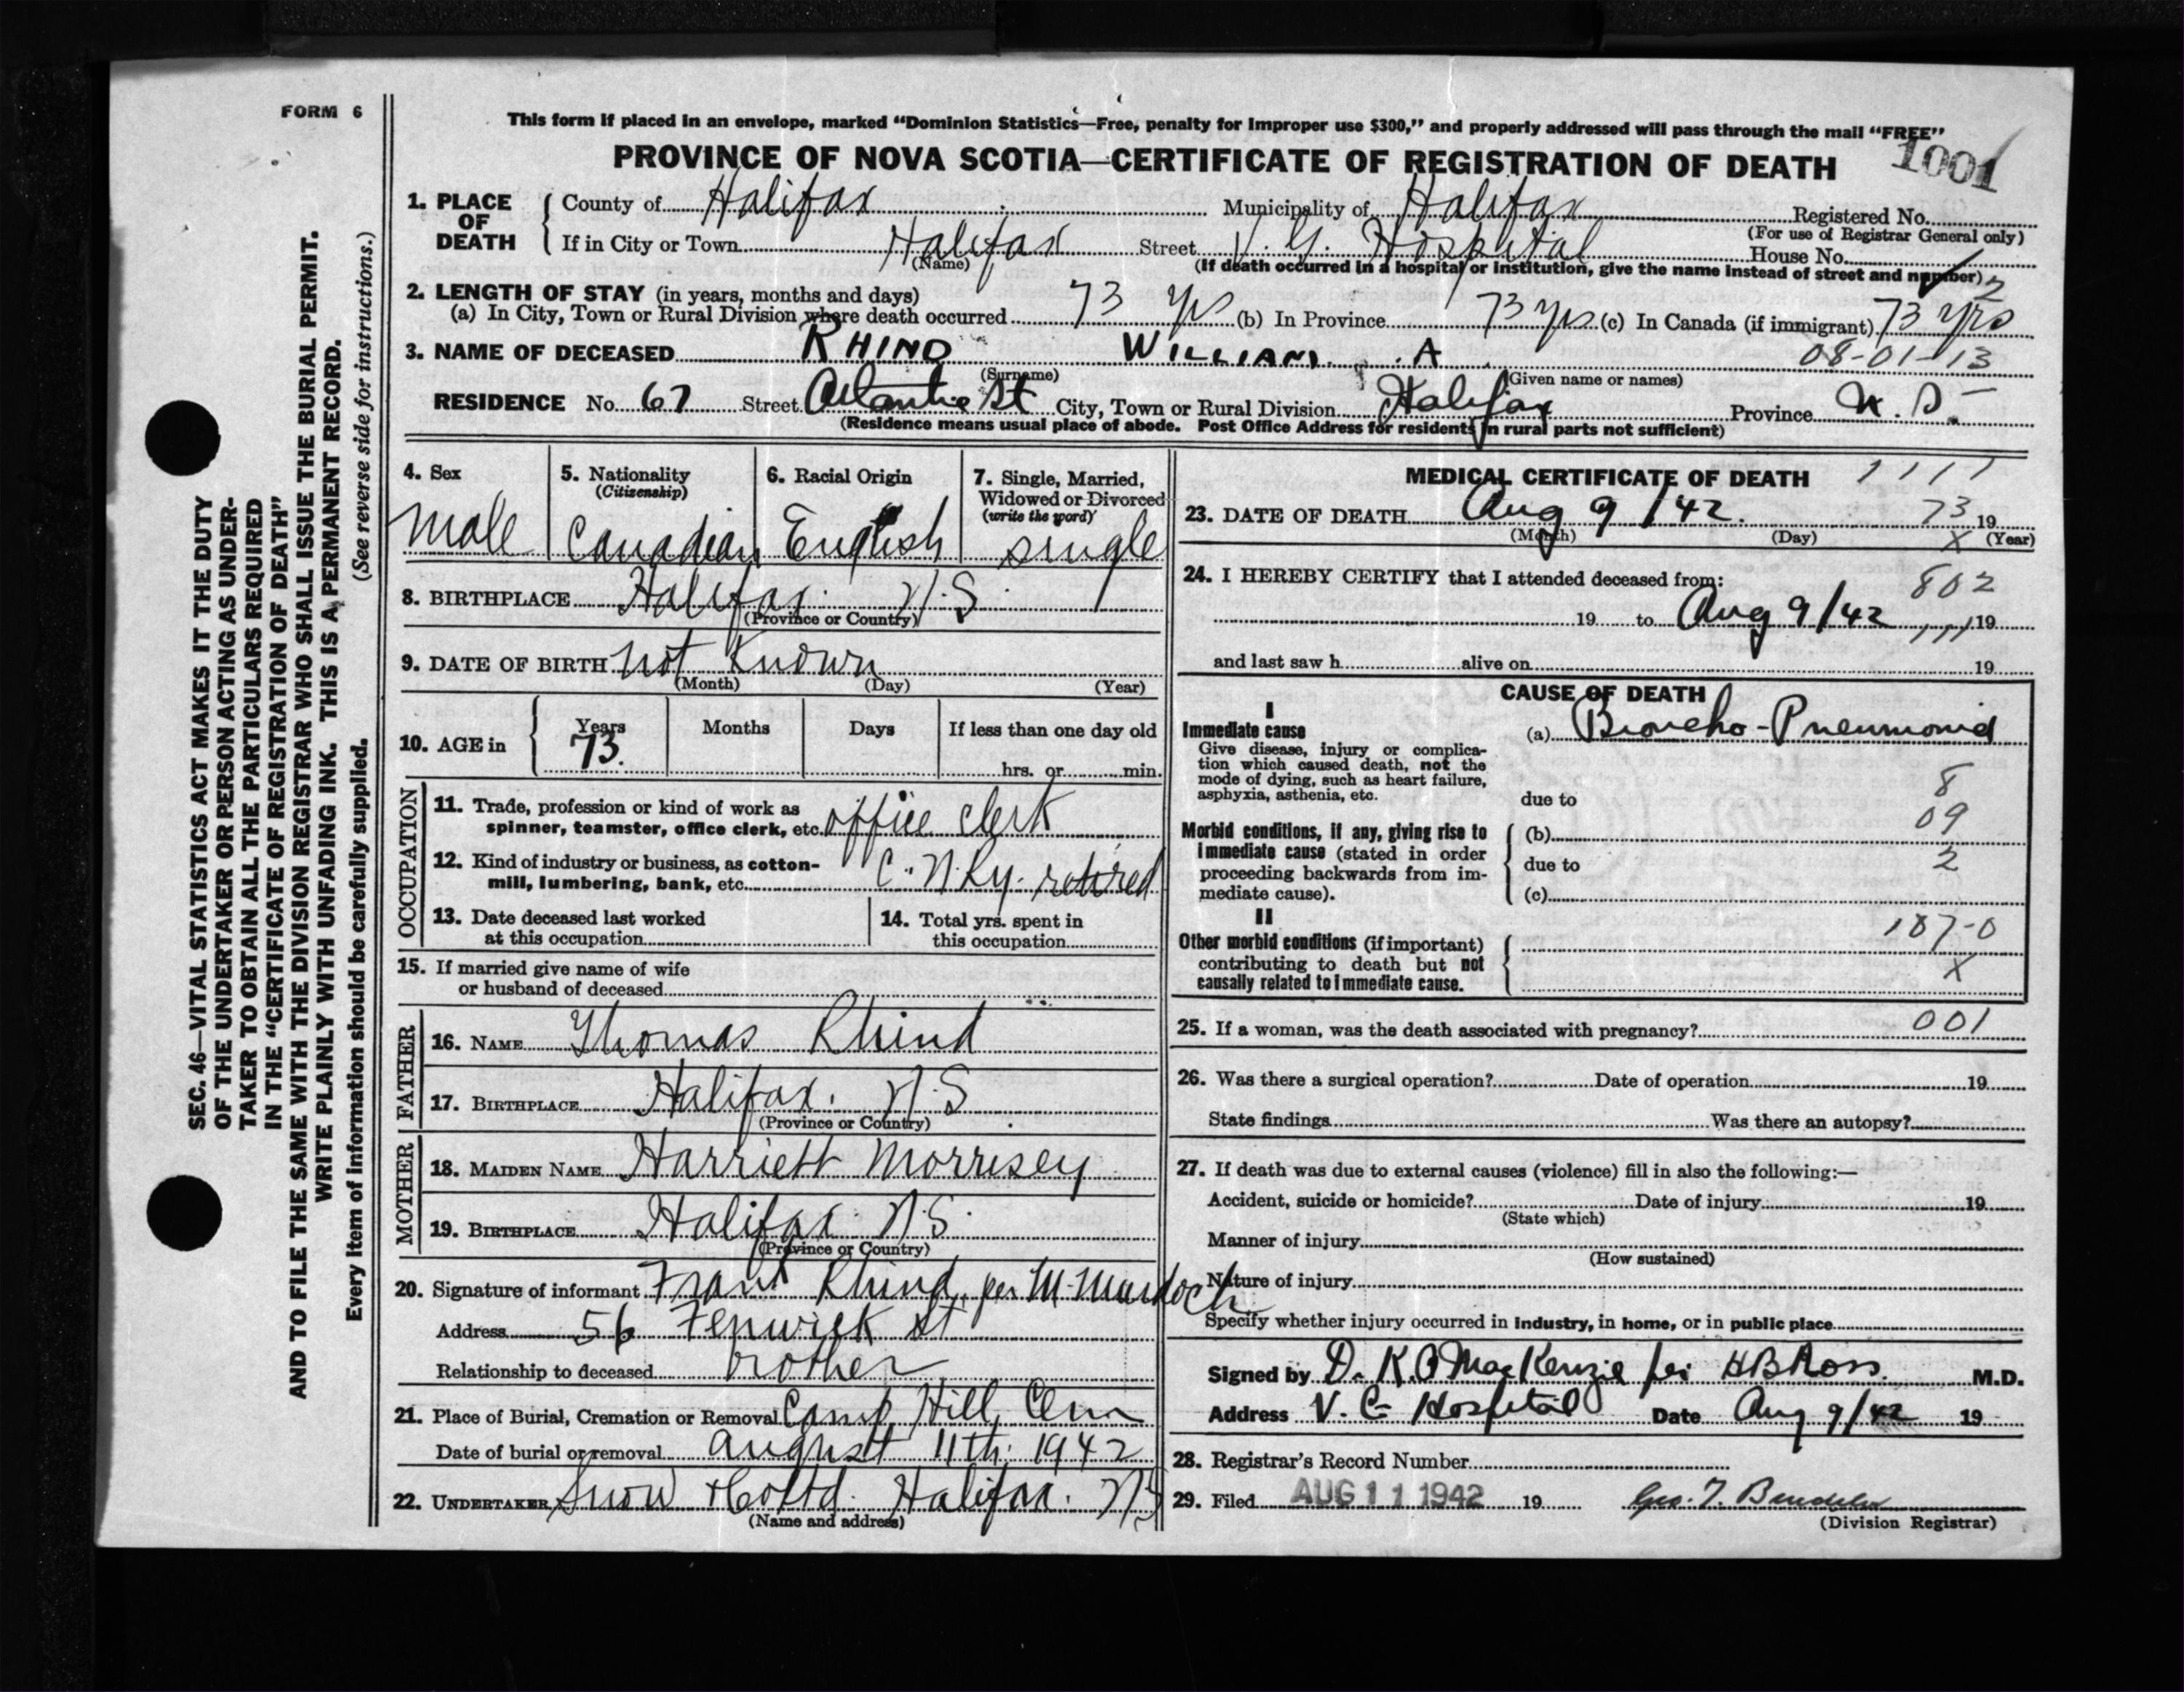 FORM 6
This form if placed in an envelope, marked "Dominion Statistics—Free, penalty for improper use $300," and properly addressed will pass through the mail "FREE"
PROVINCE OF NOVA SCOTIA—CERTIFICATE OF REGISTRATION OF DEATH
1001
1. PLACE OF DEATH County of Halifax Municipality of Halifax Registered No.
(For use of Registrar General only)
If in City or Town Halifax Street V. G. Hospital House No.
(Name) (If death occurred in a hospital or institution, give the name instead of street and number) 2
2. LENGTH OF STAY (in years, months and days)
(a) In City, Town or Rural Division where death occurred 73 yrs (b) In Province 73 yrs (c) In Canada (if immigrant) 73 yrs
3. NAME OF DECEASED RHIND WILLIAM A. 08-01-13
(Surname) (Given name or names)
RESIDENCE No. 67 Street Atlantic St City, Town or Rural Division Halifax Province N. S.
(Residence means usual place of abode. Post Office Address for residents in rural parts not sufficient)
4. Sex
male
5. Nationality
(Citizenship)
Canadian
6. Racial Origin
English
7. Single, Married,
Widowed or Divorced
(write the word)
single
8. BIRTHPLACE Halifax. N.S.
(Province or Country)
9. DATE OF BIRTH not known
(Month) (Day) (Year)
10. AGE in Years Months Days If less than one day old
73. hrs. or min.
OCCUPATION
11. Trade, profession or kind of work as
spinner, teamster, office clerk, etc. office clerk
12. Kind of industry or business, as cotton-
mill, lumbering, bank, etc. C. N. Ry. retired
13. Date deceased last worked
at this occupation
14. Total yrs. spent in
this occupation
15. If married give name of wife
or husband of deceased
FATHER
16. NAME Thomas Rhind
17. BIRTHPLACE Halifax. N.S
(Province or Country)
MOTHER
18. MAIDEN NAME Harriett Morrisey
19. BIRTHPLACE Halifax N.S.
(Province or Country)
20. Signature of informant Frank Rhind, per M. Murdoch
Address 56 Fenwick St
Relationship to deceased brother
21. Place of Burial, Cremation or Removal Camp Hill, Cem
Date of burial or removal August 11th. 1942
22. UNDERTAKER Snow & Co Ltd. Halifax. NS
(Name and address)
MEDICAL CERTIFICATE OF DEATH 1111
23. DATE OF DEATH Aug 9/42. 73 19
(Month) (Day) X (Year)
24. I HEREBY CERTIFY that I attended deceased from: 802
19 to Aug 9/42 111 19
and last saw h alive on 19
CAUSE OF DEATH
I
Immediate cause
Give disease, injury or complica-
tion which caused death, not the
mode of dying, such as heart failure,
asphyxia, asthenia, etc.
(a) Broncho-Pneumonia
due to 8
Morbid conditions, if any, giving rise to
immediate cause (stated in order
proceeding backwards from im-
mediate cause).
(b) 09
due to 2
(c)
II
Other morbid conditions (if important)
contributing to death but not
causally related to immediate cause.
107-0
X
25. If a woman, was the death associated with pregnancy? 001
26. Was there a surgical operation? Date of operation 19
State findings Was there an autopsy?
27. If death was due to external causes (violence) fill in also the following:—
Accident, suicide or homicide? Date of injury 19
(State which)
Manner of injury
(How sustained)
Nature of injury
Specify whether injury occurred in industry, in home, or in public place
Signed by D. K. O MacKenzie per HB Ross. M.D.
Address V. G Hospital Date Aug 9/42 19
28. Registrar's Record Number
29. Filed AUG 11 1942 19 Geo. T.
(Division Registrar)
SEC. 46—VITAL STATISTICS ACT MAKES IT THE DUTY
OF THE UNDERTAKER OR PERSON ACTING AS UNDER-
TAKER TO OBTAIN ALL THE PARTICULARS REQUIRED
IN THE "CERTIFICATE OF REGISTRATION OF DEATH"
AND TO FILE THE SAME WITH THE DIVISION REGISTRAR WHO SHALL ISSUE THE BURIAL PERMIT.
WRITE PLAINLY WITH UNFADING INK. THIS IS A PERMANENT RECORD.
Every item of information should be carefully supplied. (See reverse side for instructions.)